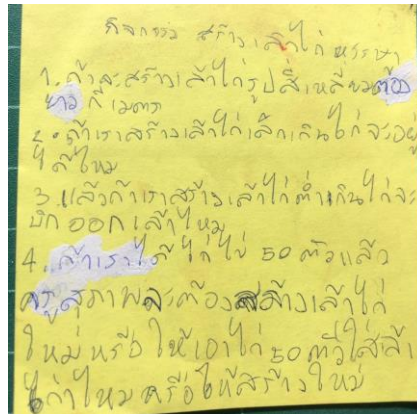 กิจกรรม สร้างเล้าไก่ หรรษา
1. ถ้าจะสร้างเล้าไก่รูปสี่เหลี่ยมต้อง
ยาวกี่เมตร
2. ถ้าเราสร้างเล้าไก่เล็กเกินไก่จะอยู่
ได้ไหม
3 แล้วถ้าเราสร้างเล้าไก่ต่ำเกินไก่จะ
บิกออกเล้าไหม
4. ถ้าเราได้ไก่ไข่ 50 ตัวแล้ว
ครูสุภาพจะต้องสล้างเล้าไก่
ใหม่หรือให้เอาไก่ 50 ตัวใส่ล้า
ไก่าไหมหรือให้สร้างใหม่